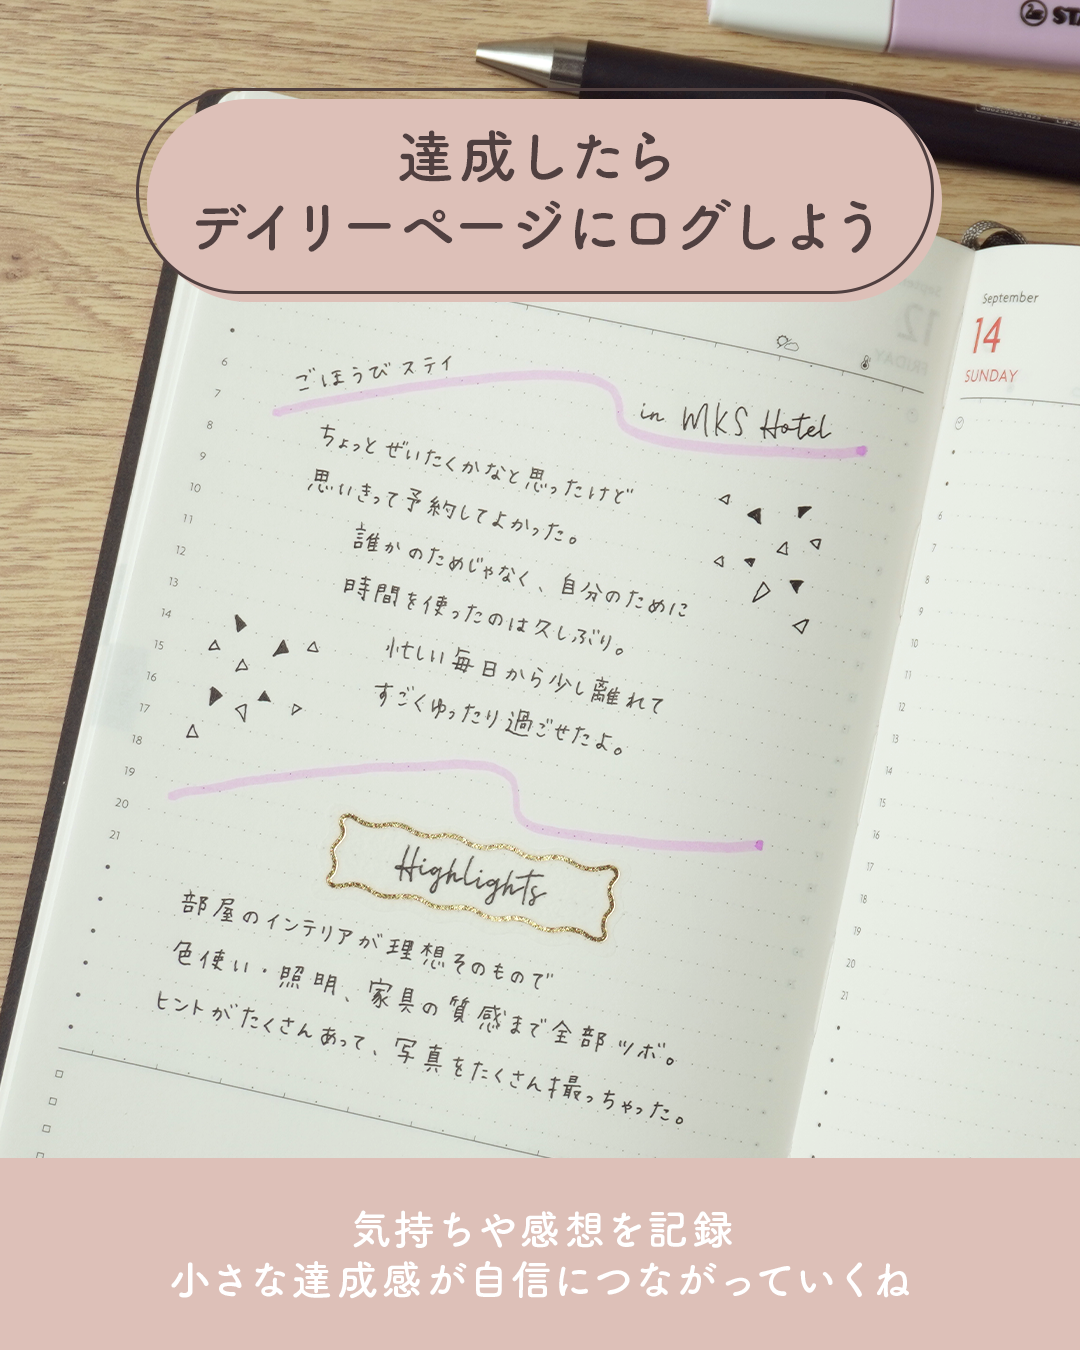 達成したら
デイリーページにログしよう
September
14
SUNDAY
12
FRIDAY
ごほうびステイ
in MKS Hotel
ちょっとぜいたくかなと思ったけど
思いきって予約してよかった。
誰かのためじゃなく、自分のために
時間を使ったのは久しぶり。
忙しい毎日から少し離れて
すごくゆったり過ごせたよ。
Highlights
部屋のインテリアが理想そのもので
色使い・照明、家具の質感まで全部ツボ。
ヒントがたくさんあって、写真をたくさん撮っちゃった。
6
7
8
9
10
11
12
13
14
15
16
17
18
19
20
21
6
7
8
9
10
11
12
13
14
15
16
17
18
19
20
21
気持ちや感想を記録
小さな達成感が自信につながっていくね